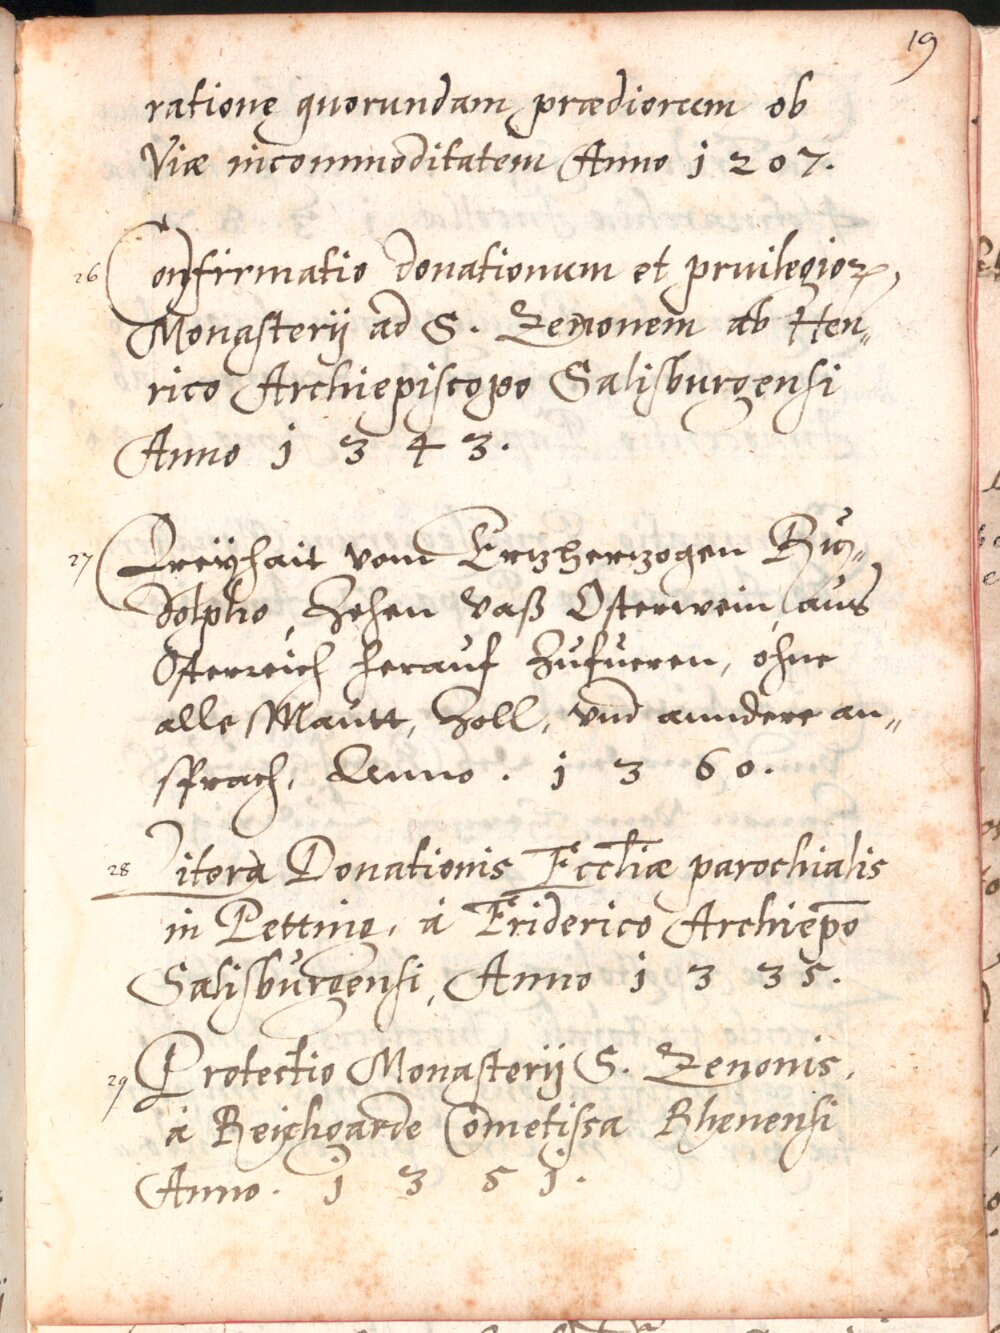 19
rationę quorundam prædiorum ob
Viæ incommoditatem Anno 1207.
26 Confirmatio donationum et priuilegioꝝ,
Monasterij ad S. Zenonem ab Hen„
rico Archiepiscopo Salisburgensi
Anno 1343.
27 Freÿhait vom Ertzhertzogen Ru„
dolpho, Zehen Vaß Osterwein, aus
Osterreich herauf Zufueren, ohne
alle Mautt, Zoll, vnd anndere an„
sprach, Anno. 1360.
28 Literæ Donationis Eccliæ parochialis
in Petting, à Friderico Archiepo
Salisburgensi, Anno 1335.
29 Protectio Monasterij S. Zenonis,
à Reichgarde Cometissa Rhenensi
Anno. 1351.